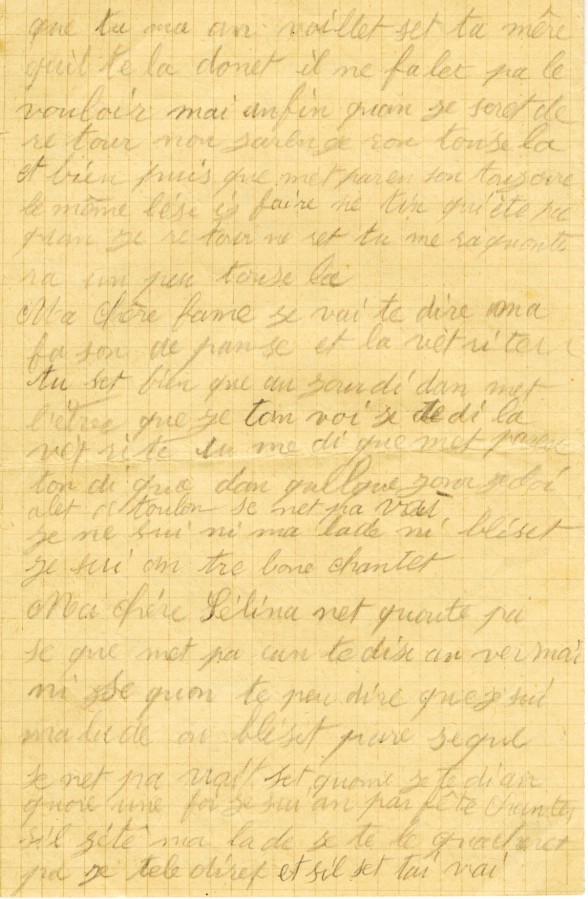 que tu ma an voillet set ta mère
quil te la donet il ne falet pa le
vouloir mai anfin quan ze seret de
re tour nou zarenze ron touse la
et bien puis que met paren son touzour
le même lése is faire ne tin quiéte pa
quan ze re tour ne ret tu me raquonte
ra un peu touse la
Ma Chère fame ze vai te dire ma
fa son de panse et la vèt ri ter
tu set bien que au zour di dan met
lètre que ze tan voi ze te di la
vèt ri te tu me di que met paran
ton di que dan quelque zour ze doi
alet a toulon se net pa vrai
ze ne sui ni ma lade ni bléset
ze sui an tre bone chantet
Ma Chère Sélina net quoute pa
se que met pa ran te dise an ver mai
ni se quon te peu dire que ze sui
malade ou bléset parse que
se net pa vrait set quome ze te di an
quore une foi ze sui an par fète chantet
sil zétè ma lade ze te le quacheret
pa ze tele diret et sil set tai vai